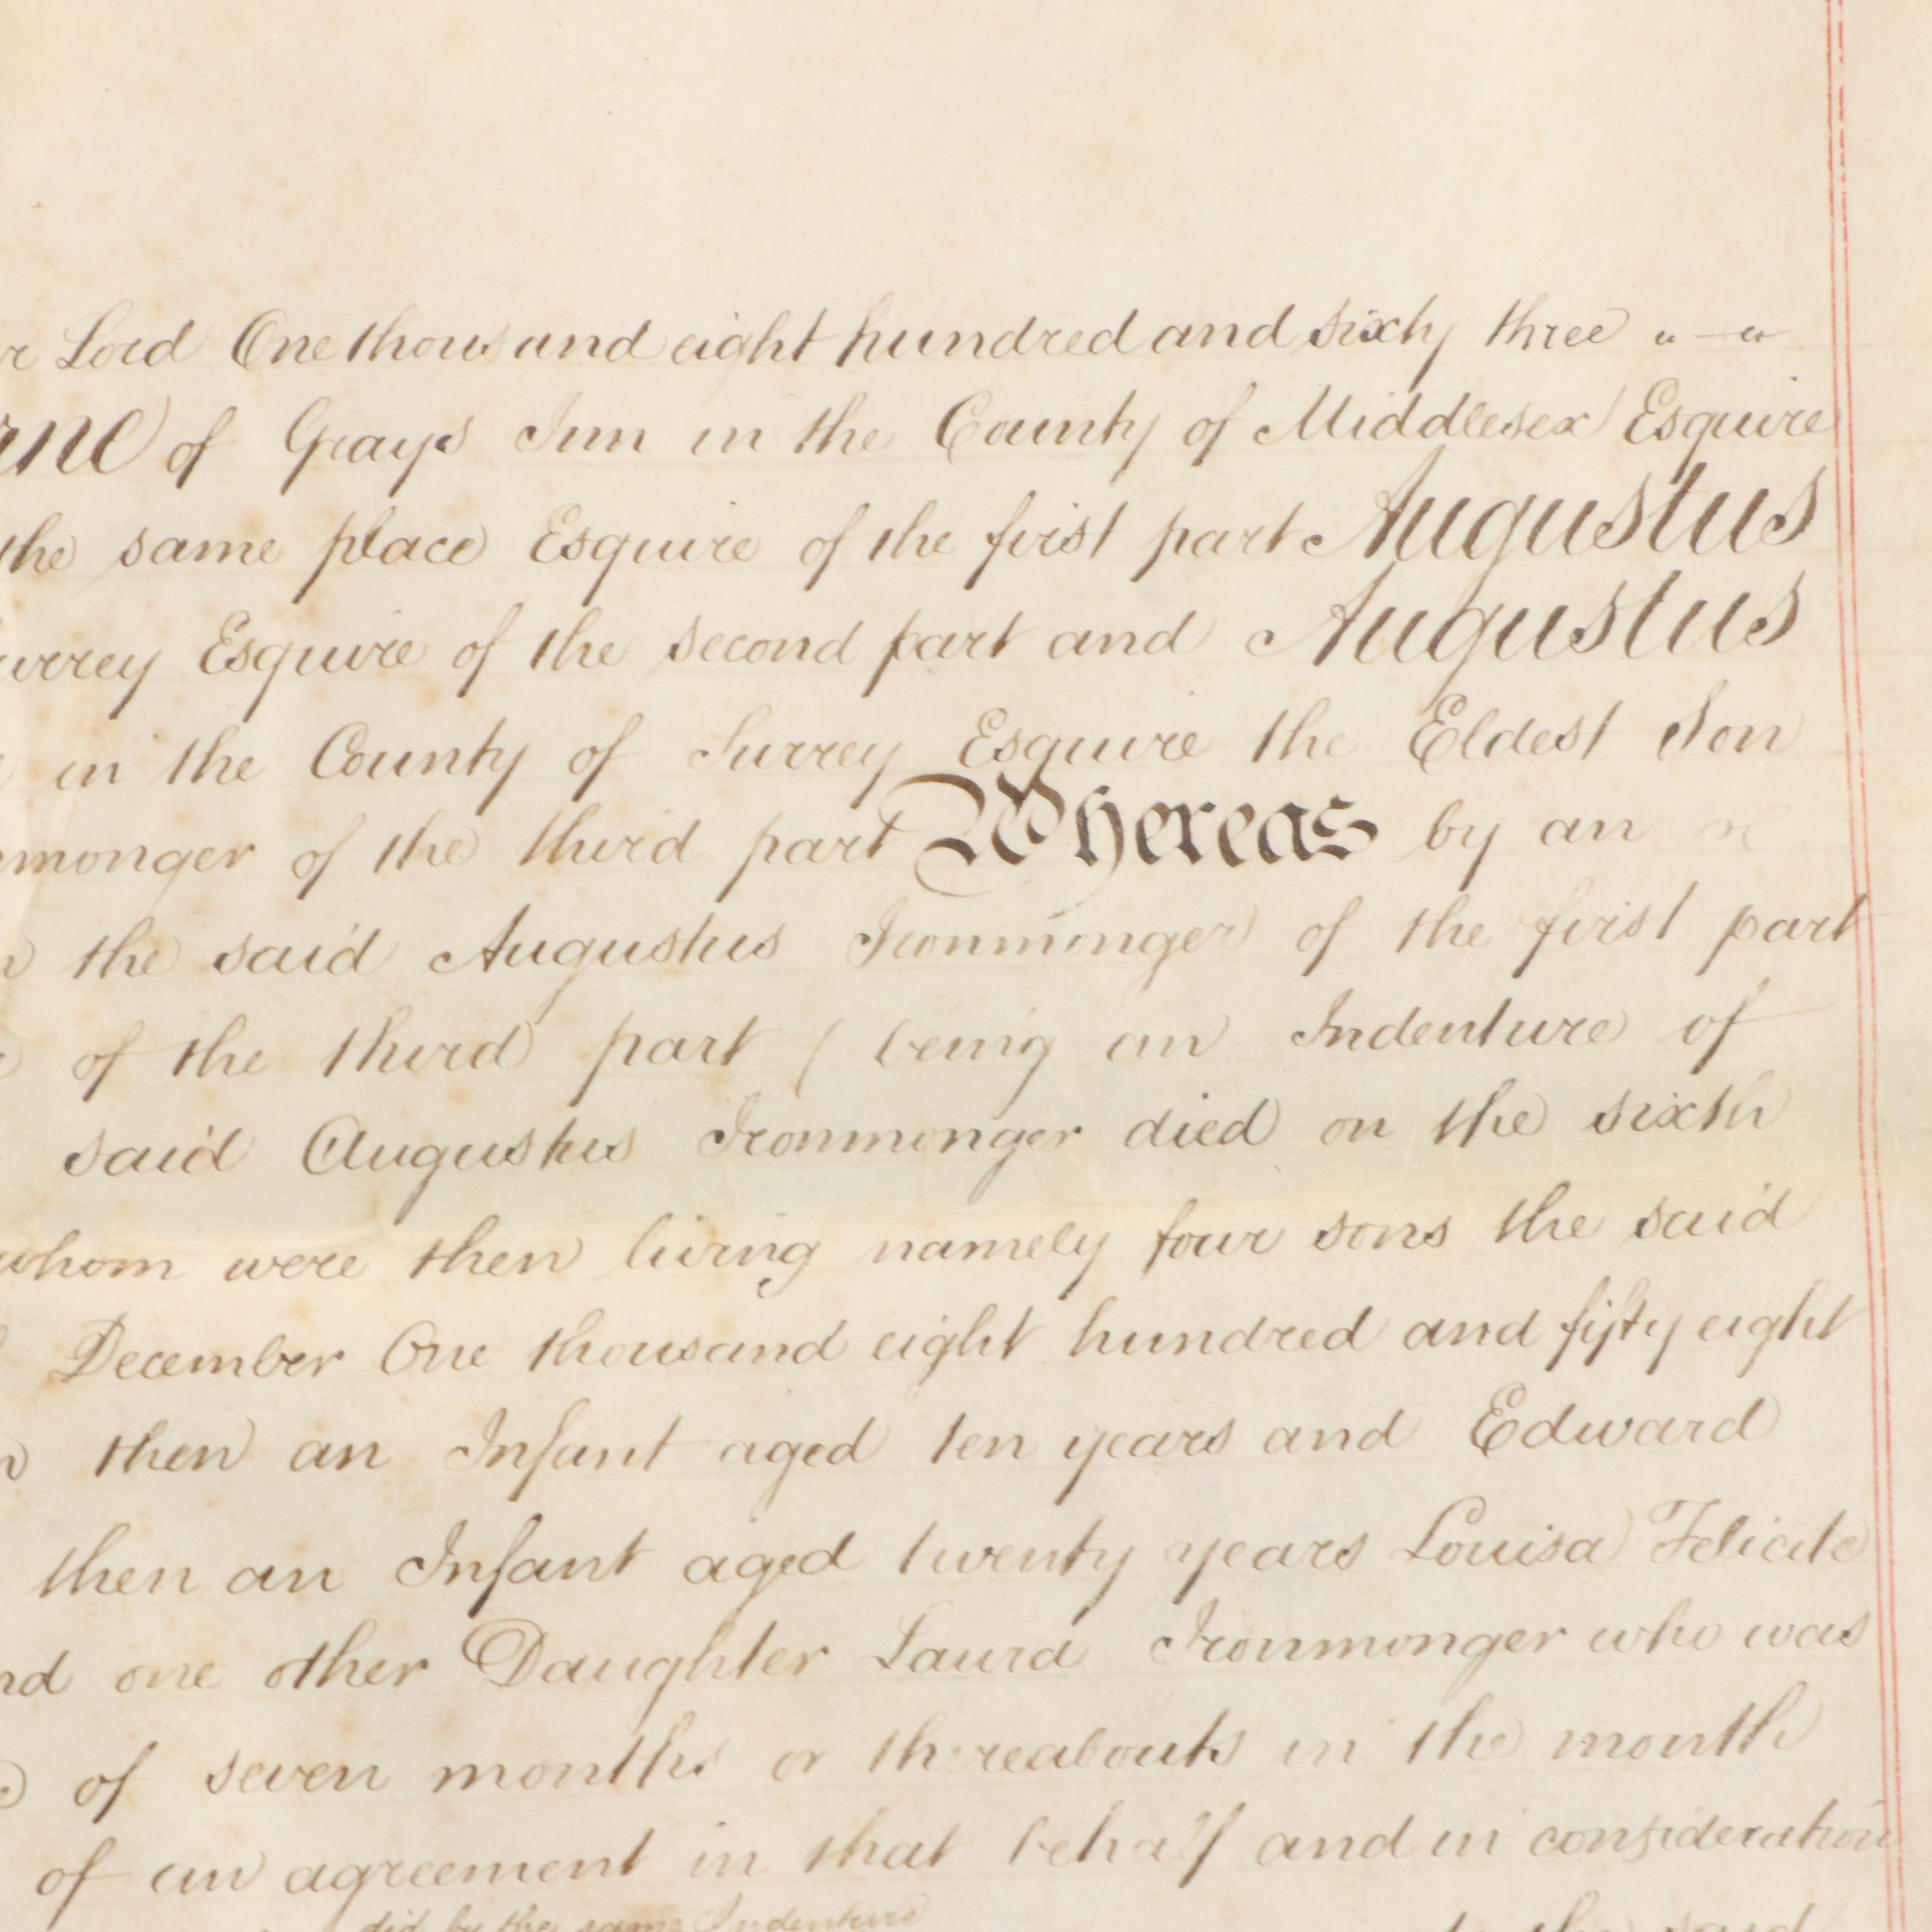 r Lord One thousand eight hundred and sixty three " — "
rne of Grays Inn in the County of Middlesex Esquire
the same place Esquire of the first part Augustus
urrey Esquire of the second part and Augustus
in the County of Surrey Esquire the Eldest Son
monger of the third part Whereas by an
the said Augustus Ironmonger of the first part
of the third part ( being an Indenture of
said Augustus Ironmonger died on the sixth
whom were then living namely four sons the said
December One thousand eight hundred and fifty eight
then an Infant aged ten years and Edward
then an Infant aged twenty years Louisa Felicite
nd one other Daughter Laura Ironmonger who was
of seven months or thereabouts in the month
of an agreement in that behalf and in consideration
did by the same Indenture
to the said